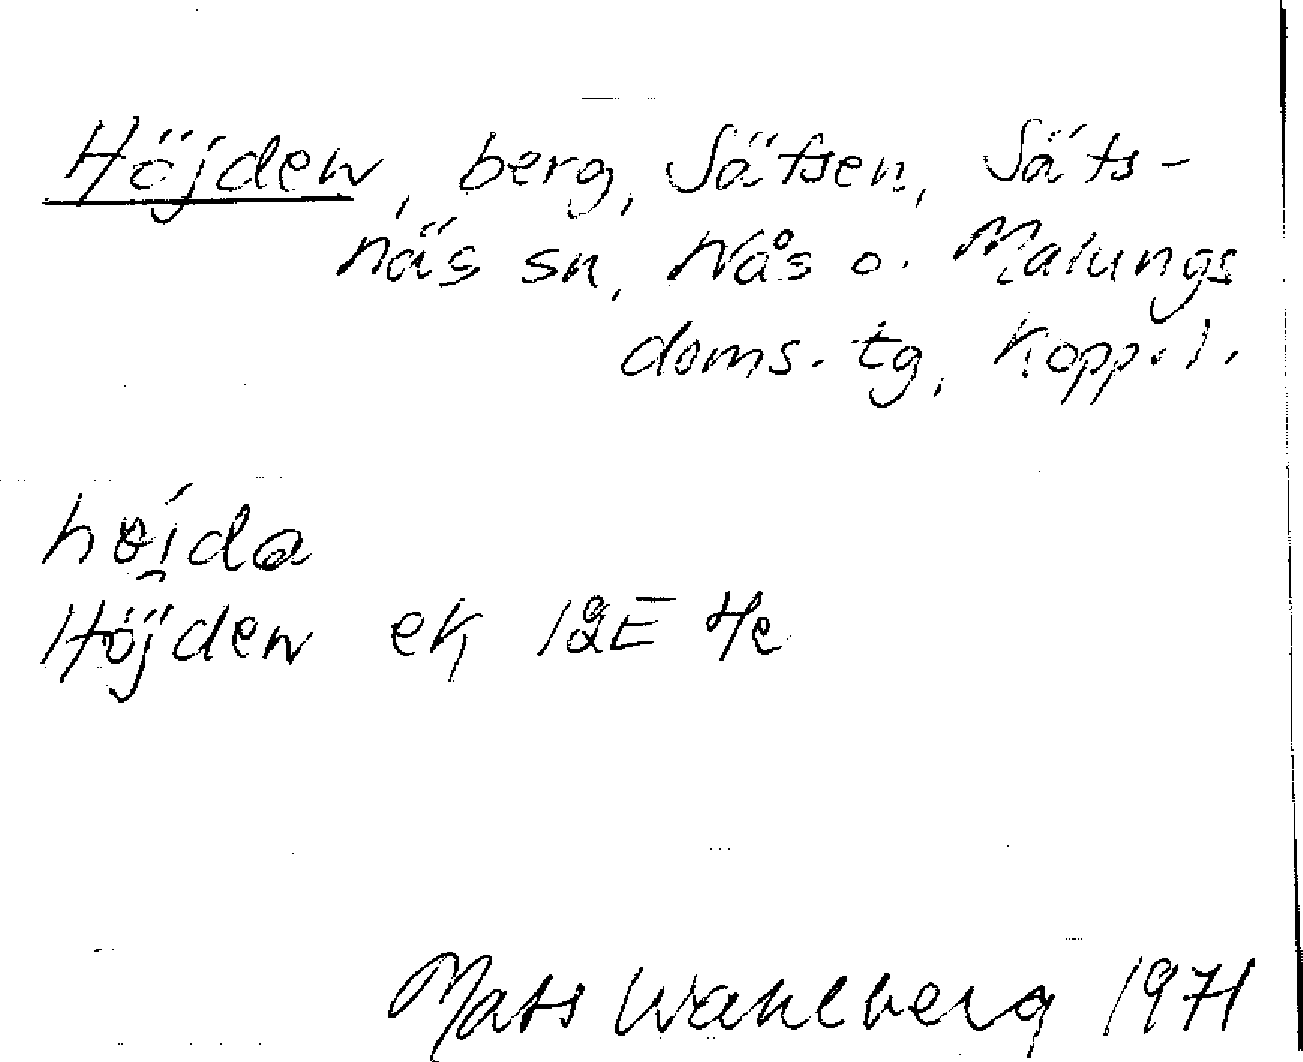 Höjden, berg, Sätsen, Säts-
näs sn, Nås o. Malungs
doms. tg, Kopp. l.
Höjden ek 12E 4e
Mats Wahlberg 1971